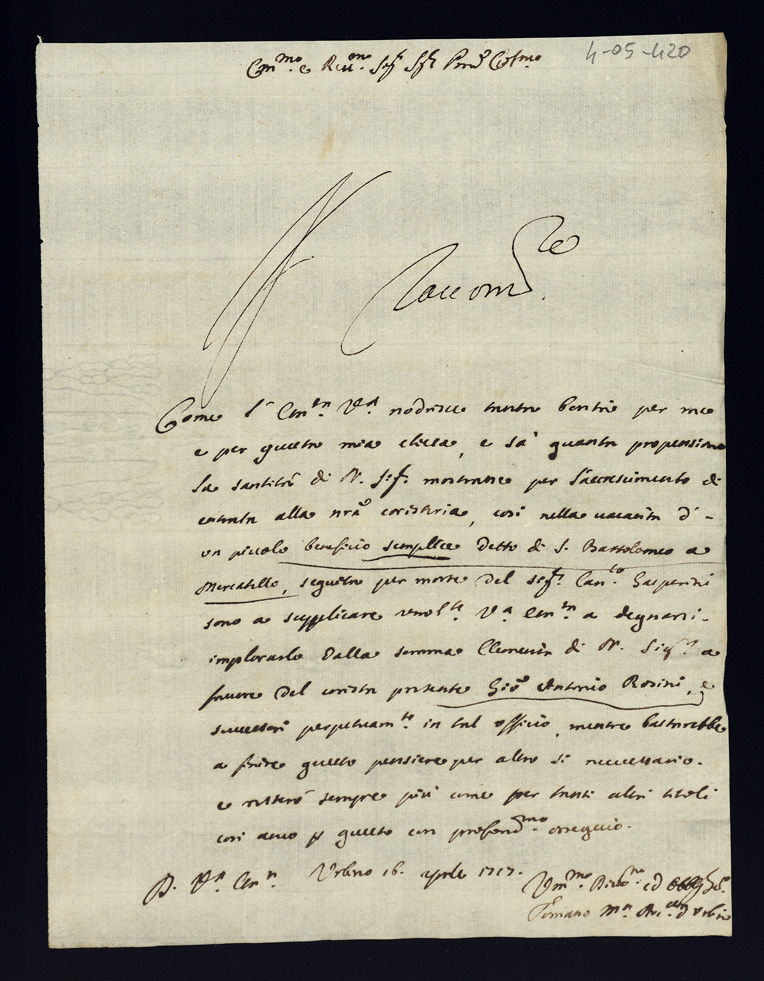 4-05-420
Em.mo e Rev.mo Sig.r Sig.r Pron Col.mo
Raccom.
Come l' Em.za V.ra nodrisce tanta bontà per me
e per questa mia chiesa, e sà quanta propensione
la santità di N. Sig.re mostrasse per l'accrescimento di
entrata alla nra coristeria, così nella vacanza d'-
un piccolo beneficio semplice detto di S. Bartolomeo a
Mercatello, seguita per morte del sig.r Can.co Gasparini
sono a supplicare V.a Em.za a degnarsi
implorarlo dalla somma Clemenza di N. Sig.re a
favore del corista presente Gio Antonio Rosini, e
successori perpetuam.te in tal officio, mentre bastarebbe
a finire questo pensiere per altro sì necessario.
e resterò sempre più come per tanti altri titoli
così anco p questo con profond.mo ossequio.
D. V.a Em.a Urbino 16. aprile 1717.
Um.mo Divot.mo ed Obblig.
Tomaso M.a Arc. d'Urbino